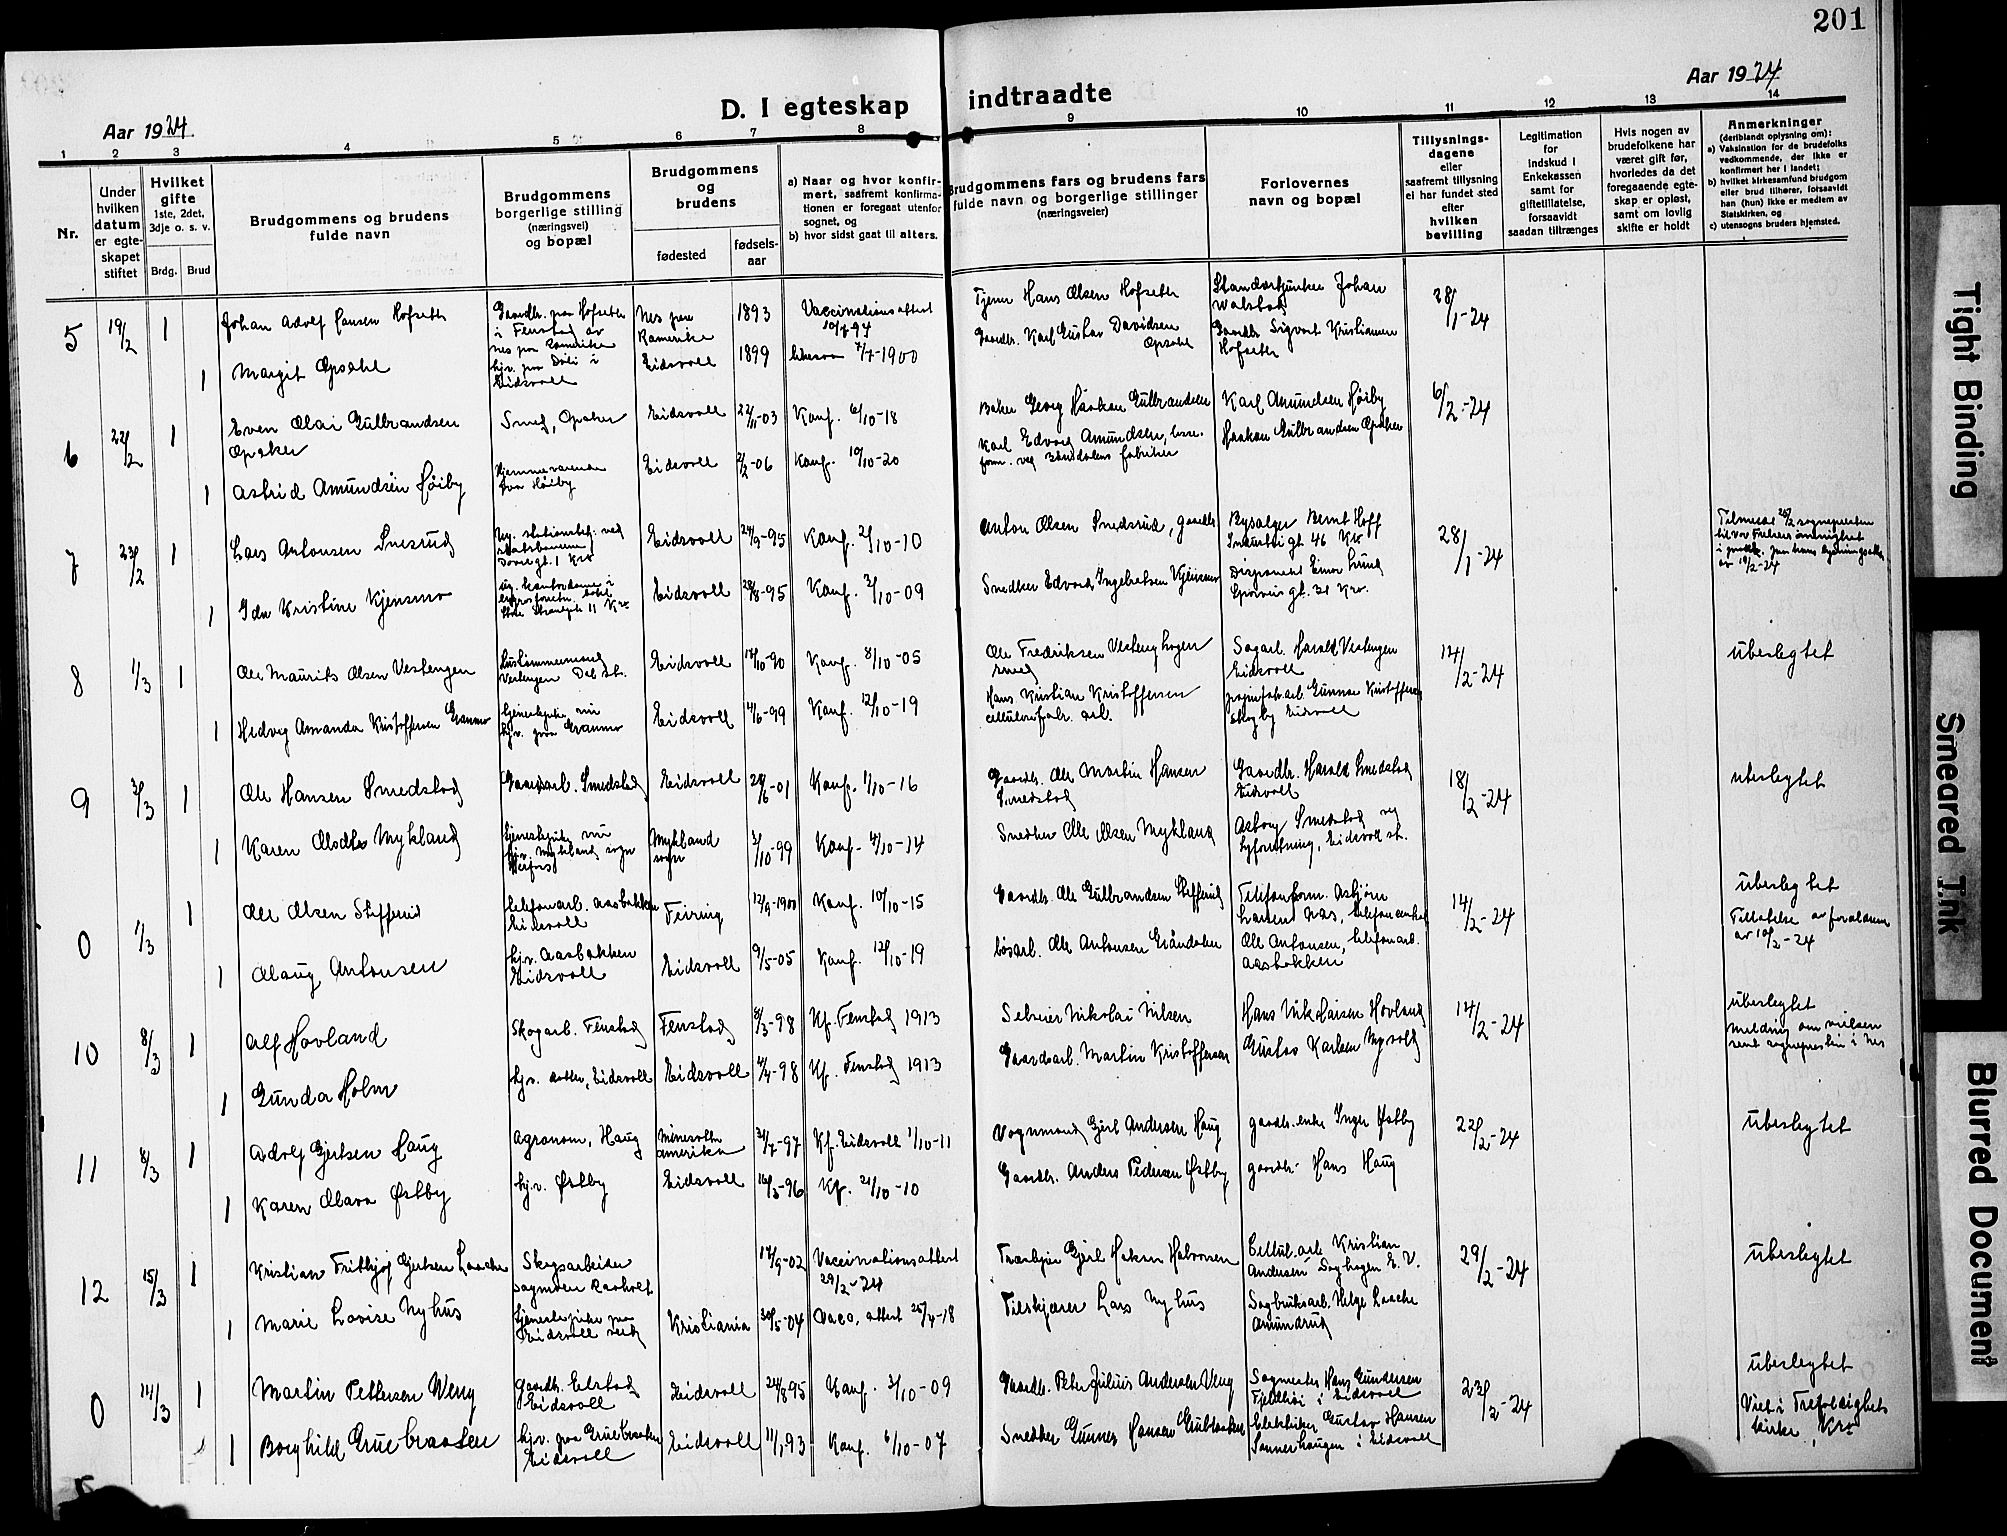 201
Aar 1924
D. I egteskap
indtraadte
Aar 1924
1 2 3 4 5 6 7 8 9 10 11 12 13 14
Nr.
Under hvilken datum er egteskapet stiftet
Hvilket gifte 1ste, 2det, 3dje o. s. v.
Brdg. Brud
Brudgommens og brudens fulde navn
Brudgommens borgerlige stilling (næringsvei) og bopæl
Brudgommens og brudens
fødested
fødsels-aar
a) Naar og hvor konfirmert, saafremt konfirmationen er foregaat utenfor sognet, og
b) hvor sidst gaat til alters.
Brudgommens fars og brudens fars fulde navn og borgerlige stillinger (næringsveier)
Forlovernes navn og bopæl
Tillysningsdagene eller saafremt tillysning ei har fundet sted efter hvilken bevilling
Legitimation for indskud i Enkekassen samt for giftetillatelse, forsaavidt saadan tiltrænges
Hvis nogen av brudefolkene har været gift før, hvorledes da det foregaaende egteskap er opløst, samt om lovlig skifte er holdt
Anmerkninger
(deriblandt oplysning om):
a) Vaksination for de brudefolks vedkommende, der ikke er konfirmert her i landet;
b) hvilket kirkesamfund brudgom eller brud tilhører, forsaavidt han (hun) ikke er medlem av Statskirken, og
c) utensogns bruders hjemsted.
5 19/2 1 Johan Adolf Hansen Hofseth
Gaardbr. paa Hofseth i Fenstad av Nes paa Romerike
Nes paa Romerike 1893 Vaccinationsattest
Tjener Hans Olsen Hofseth
Johan
28/1-24
1 Margit Opsahl
hjv. paa Døli i Eidsvoll
Eidsvoll 1899 7/7-1900
Gaardbr. Karl Gustav Davidsen Opsahl
Gaardbr. Sigvart Kristiansen Hofseth
6 22/2 1 Even Olai Gulbrandsen Opaker
Smed, Opaker Eidsvoll 22/11-03 Konf. 6/10-18
Baker Georg Haakon Gulbrandsen
Karl Amundsen Høiby
6/2-24
1 Astrid Amundsen Høiby
Hjemmeværende paa Høiby
Eidsvoll 2/2-06 Konf. 10/10-20
Karl Edvard Amundsen,
form. ved fabriker
Haakon Gulbrandsen Opaker
7 23/2 1 Lars Antonsen Snesrud
Eidsvoll 24/9-95 Konf. 2/10-10
Anton Olsen Snedsrud, gaardbr
Bysælger Bernt Hoff
Industri gt. 46 Kra
28/1-24
1 Ida Kristine Kjensmo
Eidsvoll 28/8-95 Konf. 3/10-09
Snedker Edvard Ingebretsen Kjensmo
Disponent Einar Lund
Sporveis gt. 31 Kra.
8 1/3 1 Ole Maurits Olsen Vestengen
Hustømmermand Vestengen Dal st.
Eidsvoll 17/10-90 Konf. 8/10-05
Ole Fredriksen Vesteng hagen
smed
Sagarb. Harald Vestengen
Eidsvoll
14/2-24
ubeslegtet
1 Hedvig Amanda Kristoffersen Granmo
tjenestepike nu hjv. paa Granmo
Eidsvoll 4/6-99 Konf. 12/10-19
Hans Kristian Kristoffersen
cellulosefabr. arb.
papirfabr.arb. Gunnar Kristoffersen
Skogby Eidsvoll
9 3/3 1 Ole Hansen Smedstad
Gaardsarb. Smedstad Eidsvoll 28/6-01 Konf. 1/10-16
Gaardbr. Ole Martin Hansen Smedstad
Gaardbr. Harald Smedstad
Eidsvoll
18/2-24
ubeslegtet
1 Karen Olsdtr Mykland
Tjenestepike nu hjv. Mykland sogn
Mykland sogn 3/10-99 Konf. 4/10-14
Snedker Ole Olsen Mykland
Asborg Smedstad
Eidsvoll st.
0 7/3 1 Ole Olsen Steffenrud
telefonarb. Aasbakken Eidsvoll
Feiring 12/9-1900 Konf. 10/10-15
Gaardbr. Ole Gulbrandsen Steffenrud
Telefonform. Asbjørn
Larsen Næs, telefoncentral
14/2-24
ubeslegtet
Tillatelse av forældrene
av 10/2-24
1 Olaug Antonsen
hjv. Aasbakken Eidsvoll
Eidsvoll 9/5-05 Konf. 12/10-19
løsarb. Ole Antonsen Grøndalen
Ole Antonsen, telefonarb.
Aasbakken
10 8/3 1 Alf Hovland
Skogarb. Fenstad Fenstad 8/3-98 Kf. Fenstad 1913
Selveier Nikolai Nilsen
Hans Nikolaisen Hovland
14/2-24
ubeslegtet
Melding om vielsen
sendt sognepresten i Nes
1 Gunda Holm
Eidsvoll Eidsvoll 4/4-98 Kf. Fenstad 1913
Gaardsarb. Martin Kristoffersen
Gustav Karlsen Nyvold
11 8/3 1 Adolf Gjertsen Haug
agronom, Haug Minesotta Amerika 31/7-97 Kf. Eidsvoll 1/10-11
Vognmand Gjert Andersen Haug
gaardbr.enke Inger Østby
22/2-24
ubeslegtet
1 Karen Olava Østby
hjv. Østby Eidsvoll 16/3-96 Kf. 2/10-10
Gaardbr. Anders Pedersen Østby
gaardbr. Hans Haug
12 15/3 1 Kristian Fritjof Gjertsen Laache
Skogsarbeider
Sagmoen Raaholt
17/9-02 Vaccinationsattest
29/2-24
Gjert Hakon Halvorsen
Cellul.arb. Kristian
Andersen Daghagen E. V.
29/2-24
ubeslegtet
1 Marie Lovise Nyhus
tjenestepike paa Eidsvoll verk
Kristiania 30/5-04 Vacc. attest 25/4-18
Filskjærer Lars Nyhus
Sagbruksarb. Helge Laache
Amundrud
0 14/3 1 Martin Pettersen Weng
Gaardbr. Elstad Eidsvoll
Eidsvoll 24/8 95 Konf. 3/10-09
Gaardbr. Petter Julius Andersen Veng
Sagmester Hans Gundersen
Fjeldhøi i Eidsvoll
23/2-24
ubeslegtet
Viet i Trefoldighets
kirke, Kra
1 Borghild Gruebraaten
hjv. paa Gruebraaten Eidsvoll
Eidsvoll 11/1 93 Konf. 6/10-07
Snedker Gunnar Hansen Gruebraaten
Elektriker Gustav Hansen
Sannerhaugen i Eidsvoll
Tight Binding
Smeared Ink
Blurred Document